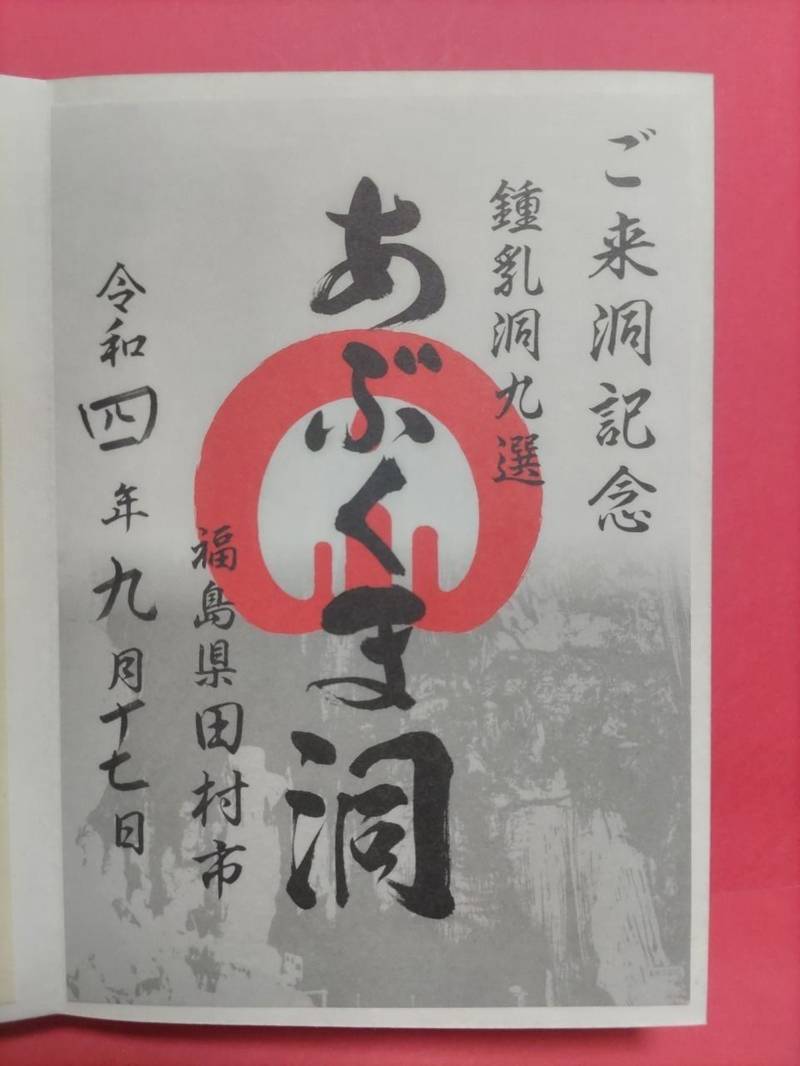 ご来洞記念
鍾乳洞九選
あぶくま洞
福島県田村市
令和四年九月十七日